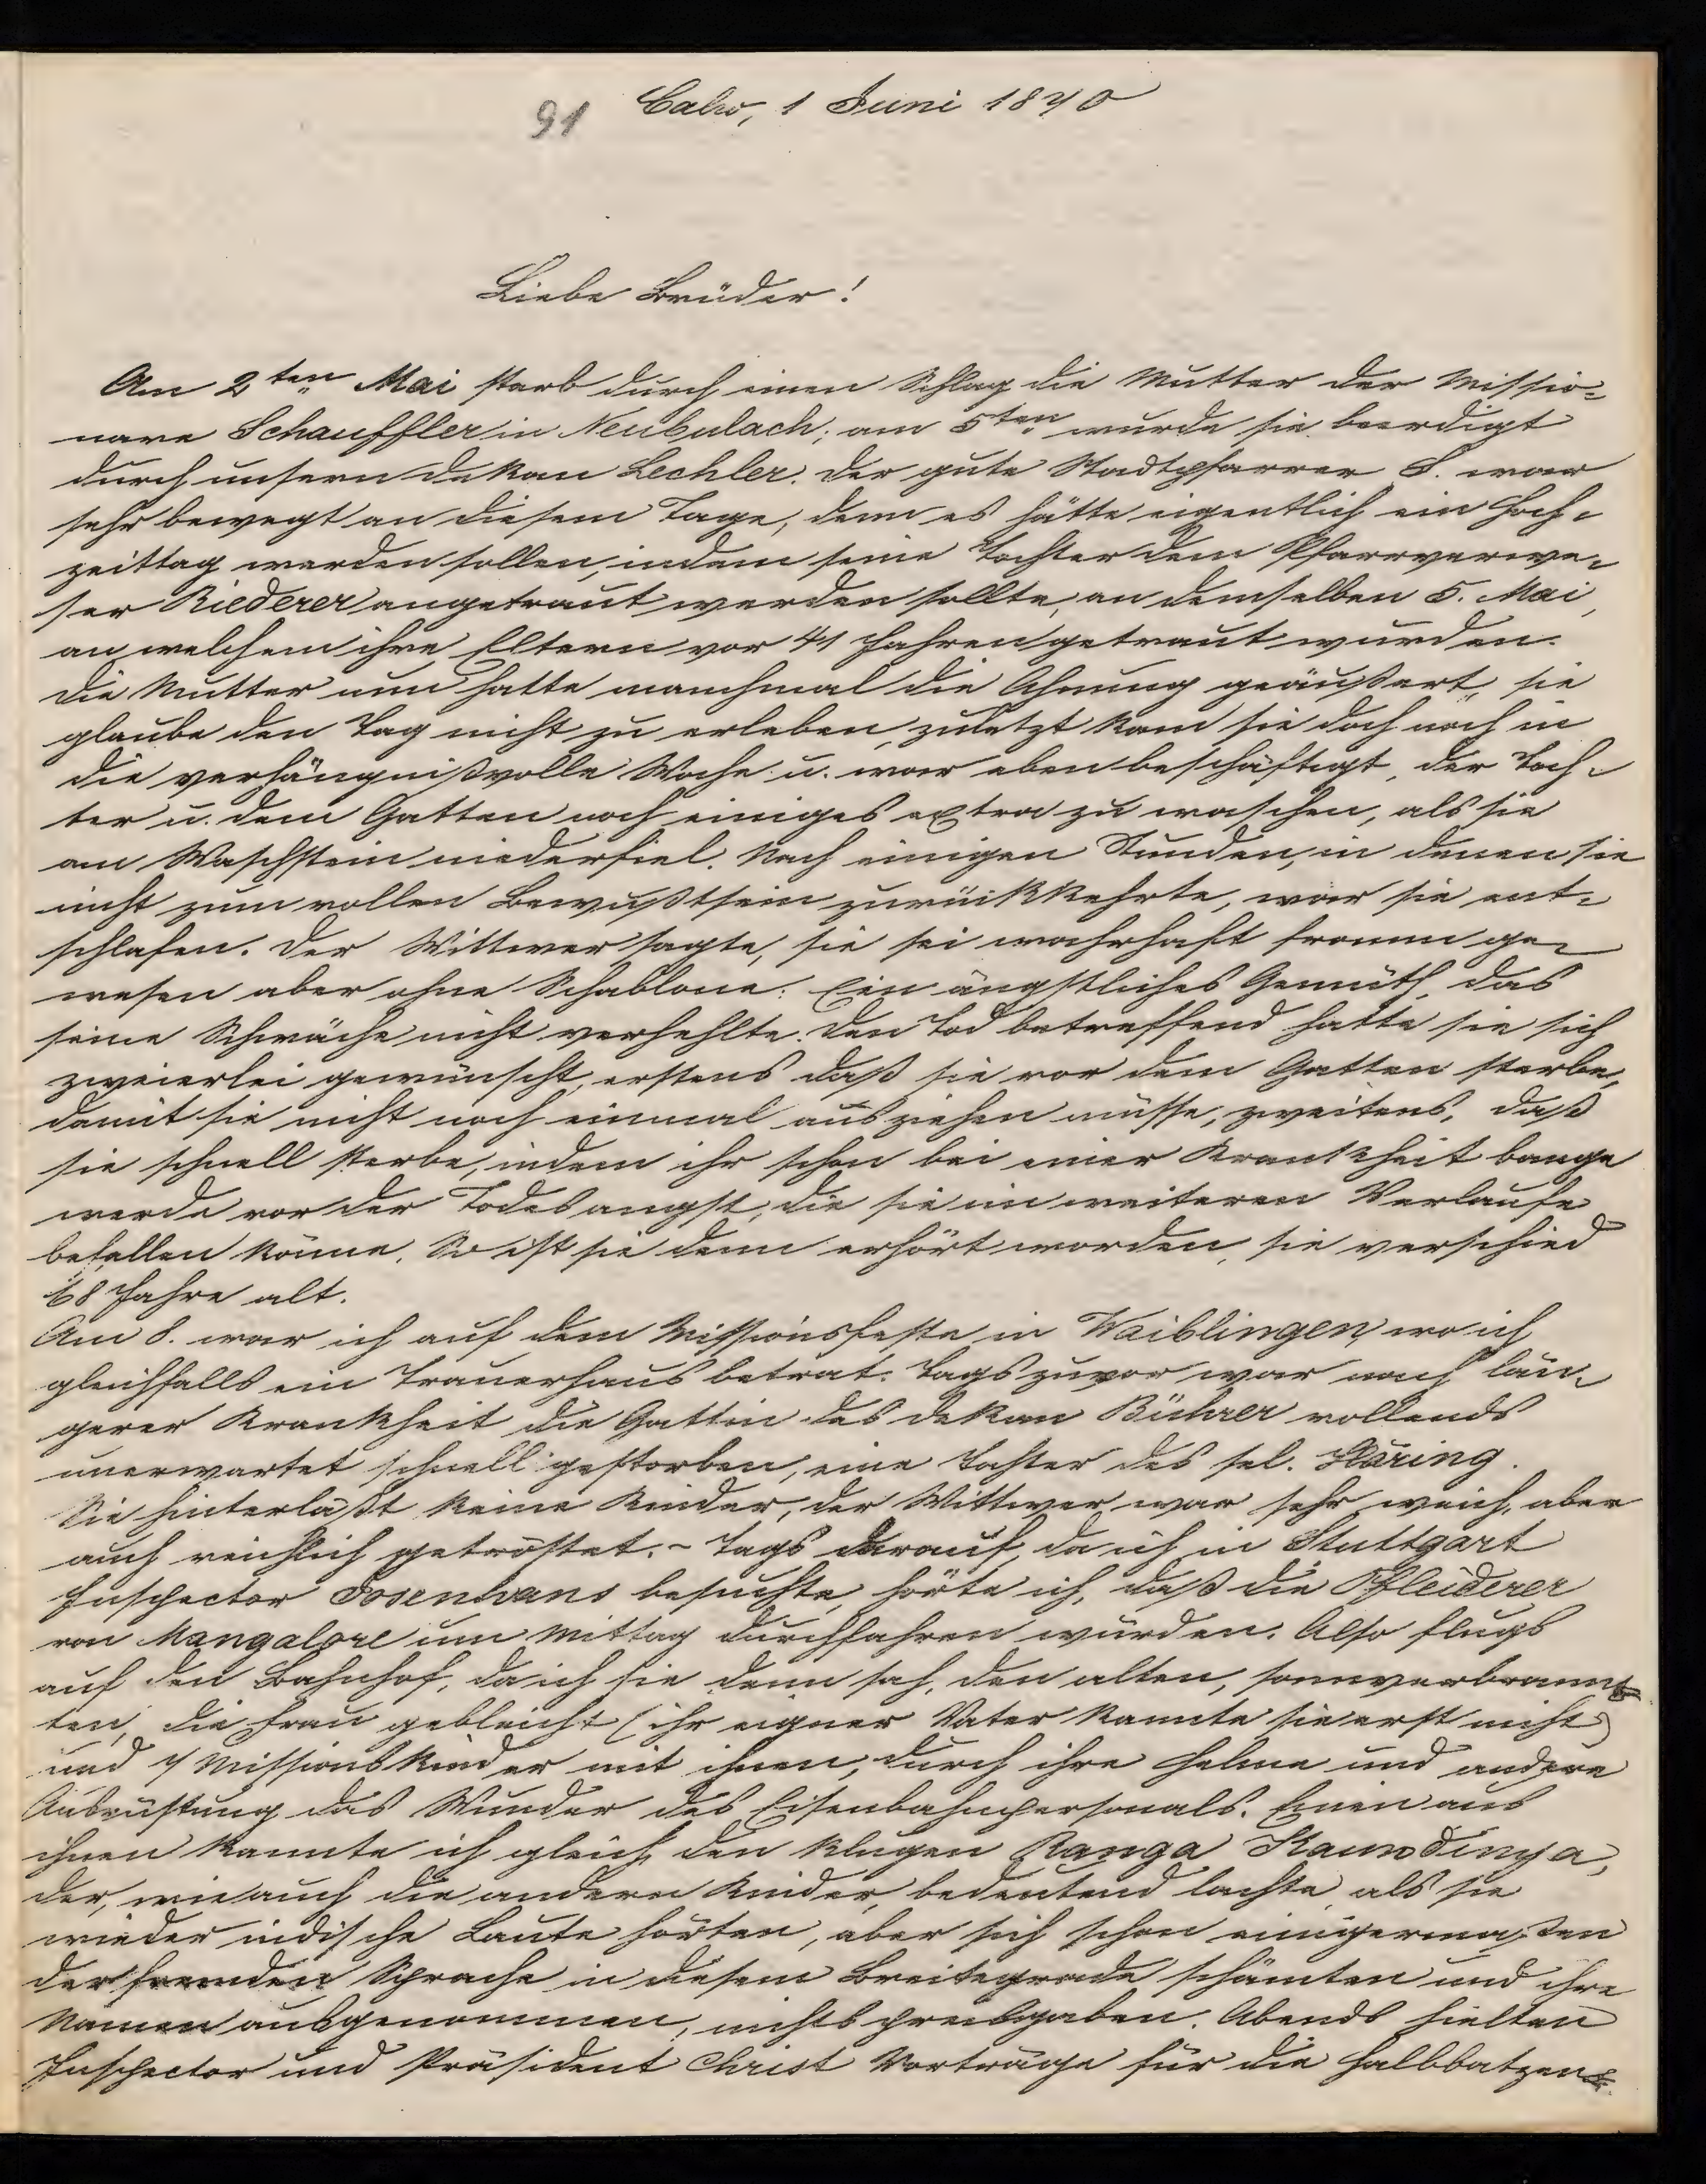 91 Calw, 1 Juni 1870
Liebe Brüder!
Am 2ten Mai starb durch einen Schlag die Mutter der Missio-
nare Schauffler in Neubulach; am 5ten wurde sie beerdigt
durch unsern Dekan Lechler. Der gute Stadtpfarrer S. war
sehr bewegt an diesem Tage, denn es hätte eigentlich ein Hoch-
zeittag werden sollen, indem seine Tochter dem Pfarrverwe-
ser Riederer angetraut werden sollte, an demselben 5. Mai,
an welchem ihre Eltern vor 41 Jahren getraut wurden.
Die Mutter nun hatte manchmal die Ahnung geäußert, sie
glaube den Tag nicht zu erleben, zuletzt kam sie doch noch in
die verhängnißvolle Woche u. war eben beschäftigt, der Toch-
ter u. dem Gatten noch einiges extra zu waschen, als sie
am Waschstein niederfiel. Nach einigen Stunden, in denen sie
nicht zum vollen Bewußtsein zurückkehrte, war sie ent-
schlafen. Der Wittwer sagte, sie sei wahrhaft fromm ge-
wesen aber ohne Schablone: Ein ängstliches Gemüth, das
seine Schwäche nicht verhehlte. Den Tod betreffend hatte sie sich
zweierlei gewünscht, erstens daß sie vor dem Gatten sterbe,
damit sie nicht noch einmal ausziehen müsse, zweitens, daß
sie schnell sterbe, indem ihr schon bei einer Krankheit bange
werde vor der Todesangst, die sie im weiteren Verlaufe
befallen könne. So ist sie denn erhört worden, sie verschied
68 Jahre alt.
Am 8. war ich auf dem Missionsfeste in Waiblingen, wo ich
gleichfalls ein Trauerhaus betrat. Tags zuvor war nach län-
gerer Krankheit die Gattin des Dekan Bührer vollends
unerwartet schnell gestorben, eine Tochter des sel. Häring.
Sie hinterläßt keine Kinder, der Wittwer war sehr weich, aber
auch reichlich getröstet. - Tags darauf, da ich in Stuttgart
Inspector Josenhans besuchte, hörte ich, daß die Pfleiderer
von Mangalore um Mittag durchfahren würden. Also flugs
auf den Bahnhof, da ich sie denn sah, den alten, sonnverbrann-
ten, die Frau gebleicht (ihr eigner Vater kannte sie erst nicht)
und 7 Missionskinder mit ihnen, durch ihre Helme und andere
Ausrüstung das Wunder des Eisenbahnpersonals. Einen aus
ihnen kannte ich gleich, den klugen Ranga Kaundinya,
der, wie auch die andern Kinder, bedeutend lachte, als sie
wieder indische Laute hörten, aber sich schon einigermaßen
der fremden Sprache in diesem Breitegrade schämten und ihre
Namen ausgenommen, nichts preisgaben. Abends hielten
Inspector und Präsident Christ Vorträge für die Halbbatzen